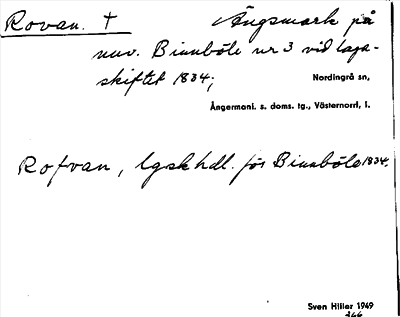 Rovan. † Ängsmark på
nuv. Binnböle nr 3 vid laga-
skiftet 1834;
Nordingrå sn,
Ångermanl. s. doms. tg., Västernorrl, l.
Rofvan, lgskhdl. för Binnböle 1834.
Sven Hiller 1949